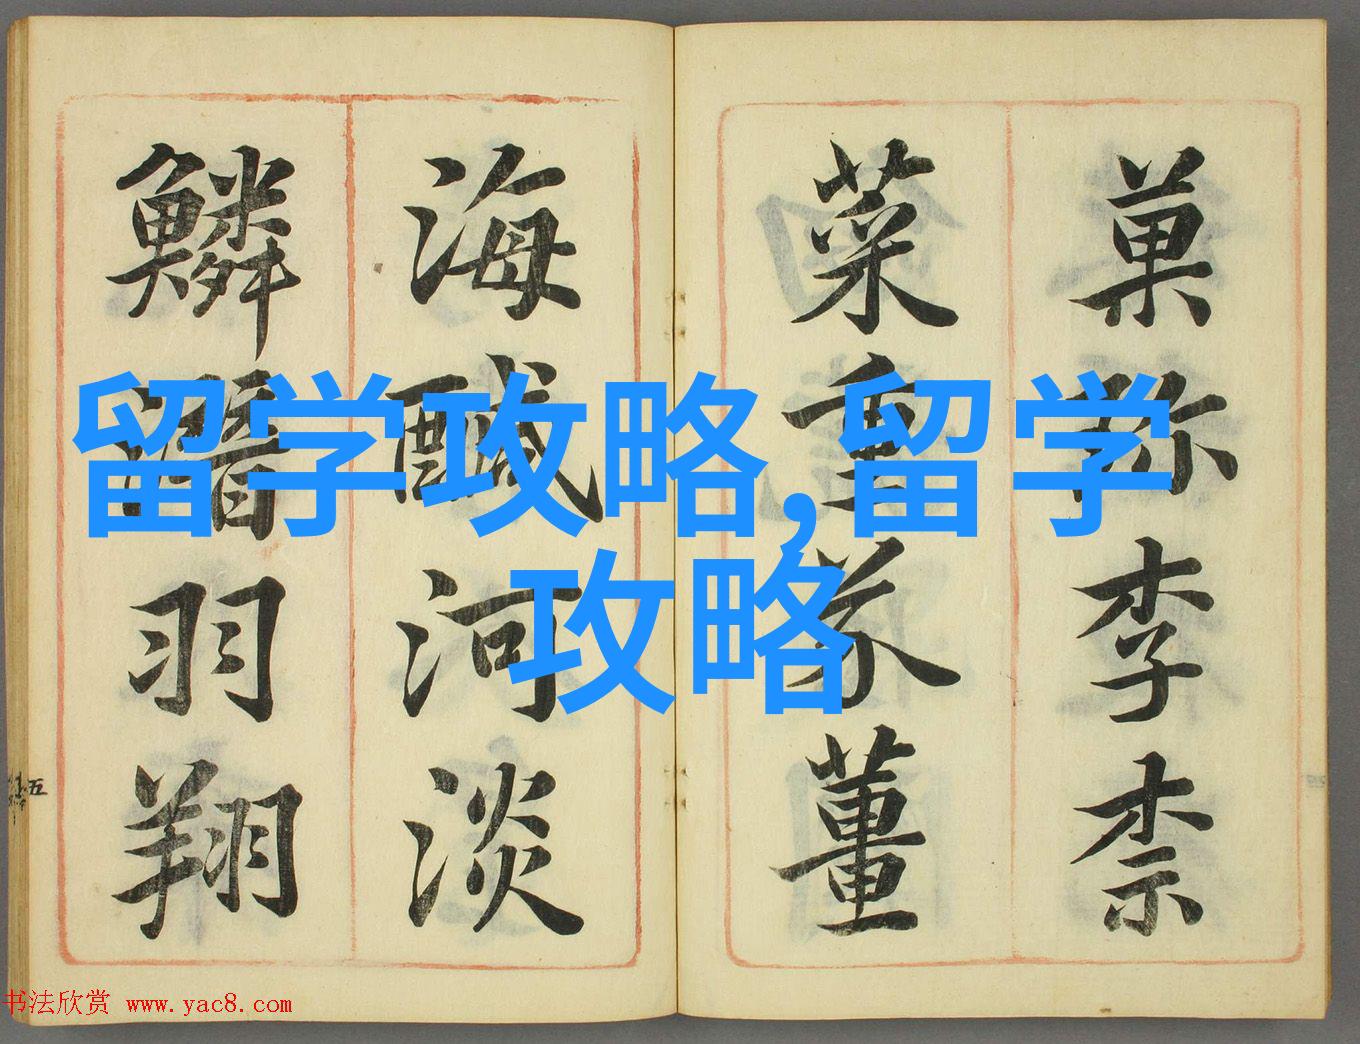 菓珎李柰
菜重芥薑
海醎河淡
鱗潛羽翔
五
留学攻略,留学
攻略
书法欣赏 www.yac8.com